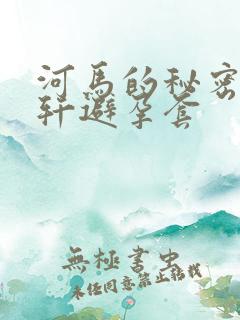 河马的秘密
轩避孕套
無極書虫
未经同意禁止转载